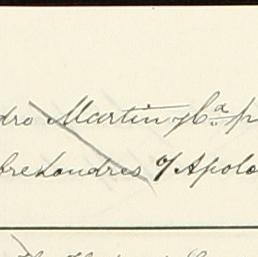 dro Martin y Cª p
bre Londres o/ Apolo